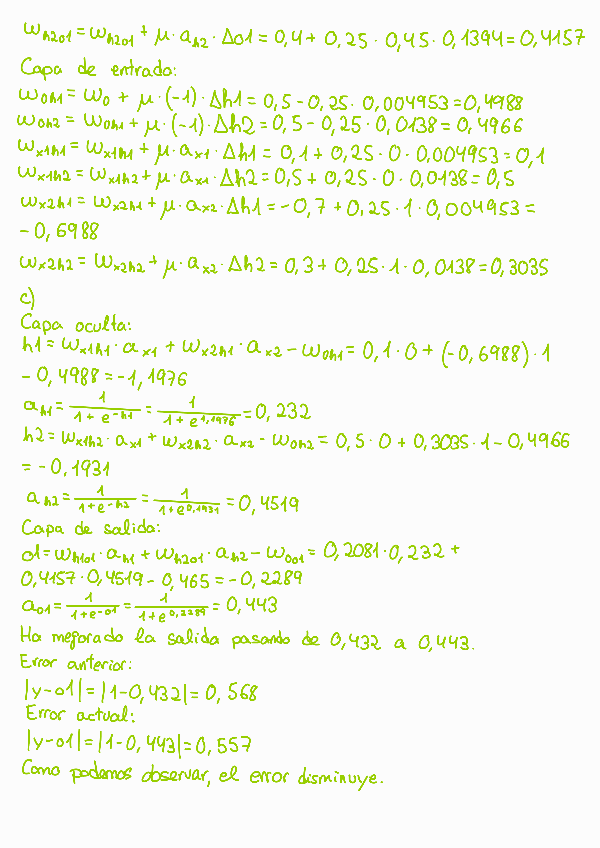 ωh2o1 = ωh2o1 + μ · ah2 · Δo1 = 0,4 + 0,25 · 0,45 · 0,1394 = 0,4157
Capa de entrada:
ω0h1 = ω0 + μ · (-1) · Δh1 = 0,5 - 0,25 · 0,004953 = 0,4988
ω0h2 = ω0h1 + μ · (-1) · Δh2 = 0,5 - 0,25 · 0,0138 = 0,4966
ωx1h1 = ωx1h1 + μ · ax1 · Δh1 = 0,1 + 0,25 · 0 · 0,004953 = 0,1
ωx1h2 = ωx1h2 + μ · ax1 · Δh2 = 0,5 + 0,25 · 0 · 0,0138 = 0,5
ωx2h1 = ωx2h1 + μ · ax2 · Δh1 = -0,7 + 0,25 · 1 · 0,004953 =
-0,6988
ωx2h2 = ωx2h2 + μ · ax2 · Δh2 = 0,3 + 0,25 · 1 · 0,0138 = 0,3035
c)
Capa oculta:
h1 = ωx1h1 · ax1 + ωx2h1 · ax2 - ω0h1 = 0,1 · 0 + (-0,6988) · 1
- 0,4988 = -1,1976
ah1 = 1/(1 + e^-h1) = 1/(1 + e^1,1976) = 0,232
h2 = ωx1h2 · ax1 + ωx2h2 · ax2 - ω0h2 = 0,5 · 0 + 0,3035 · 1 - 0,4966
= -0,1931
ah2 = 1/(1+e^-h2) = 1/(1+e^0,1931) = 0,4519
Capa de salida:
o1 = ωh1o1 · ah1 + ωh2o1 · ah2 - ω0o1 = 0,2081 · 0,232 +
0,4157 · 0,4519 - 0,465 = -0,2289
ao1 = 1/(1+e^-o1) = 1/(1+e^0,2289) = 0,443
Ha mejorado la salida pasando de 0,432 a 0,443.
Error anterior:
|y-o1| = |1-0,432| = 0,568
Error actual:
|y-o1| = |1-0,443| = 0,557
Como podemos observar, el error disminuye.